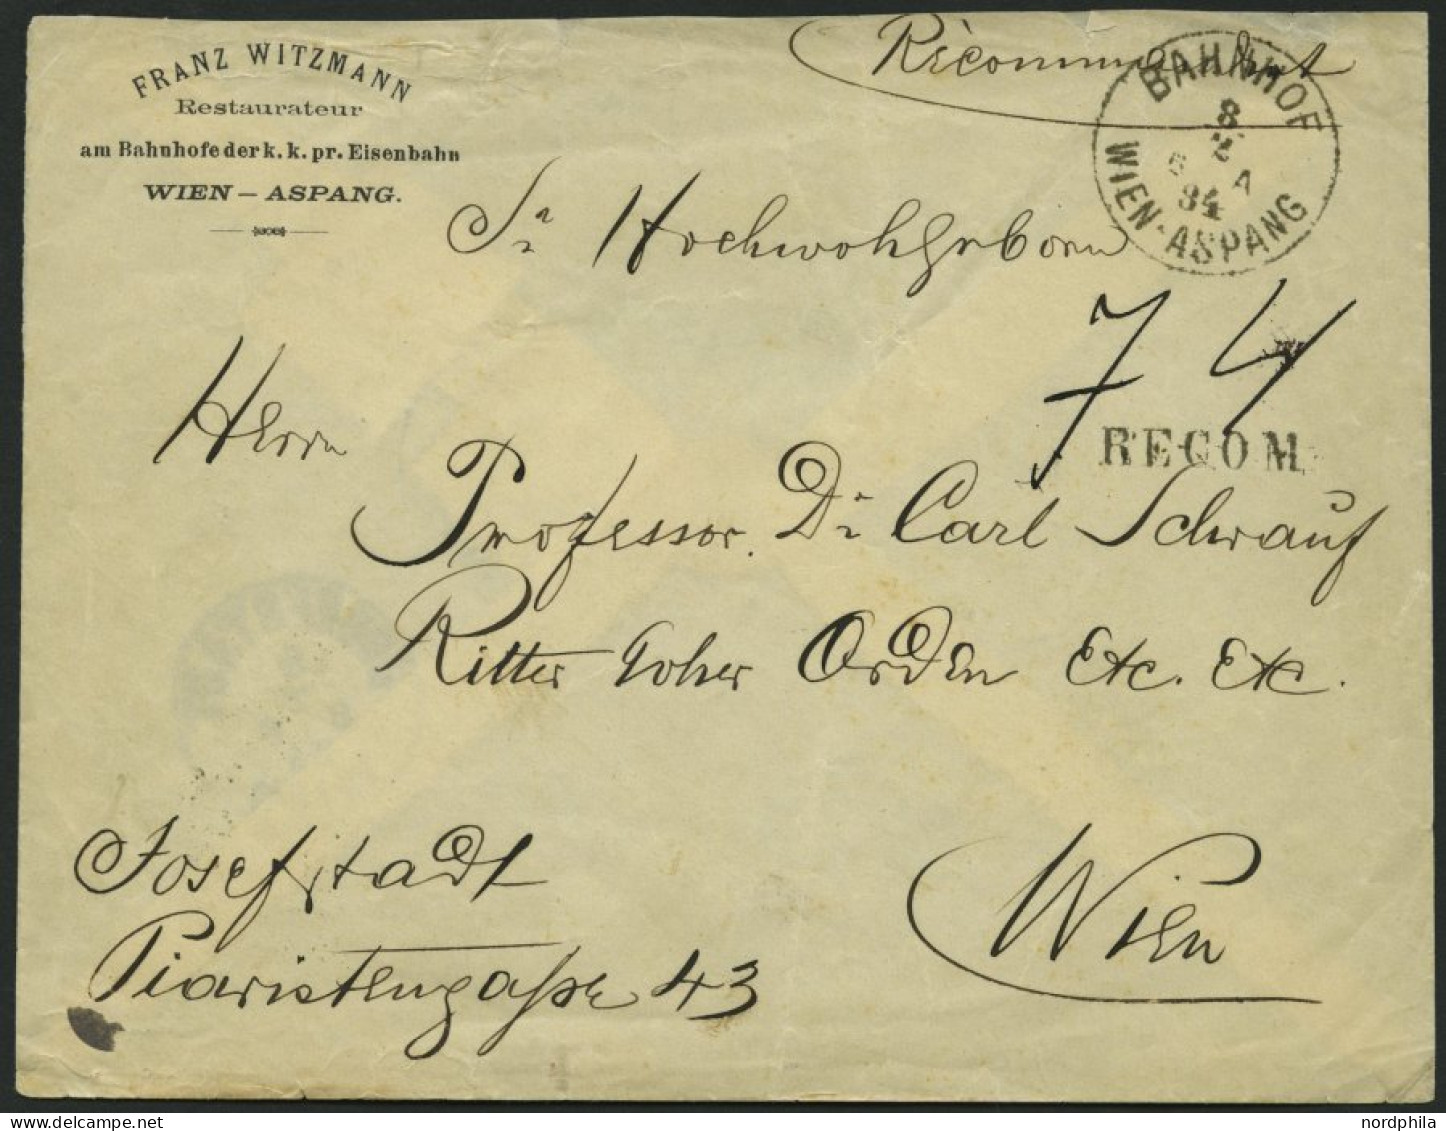 FRANZ WITZMANN
Restaurateur
am Bahnhofe der k. k. pr. Eisenbahn
WIEN – ASPANG.
Recommandirt
BAHNHOF
8
5
6 A
94
WIEN-ASPANG
Sr Hochwohlgeborn
74
RECOM.
Herrn
Professor. Dr Carl Schrauf
Ritter hoher Orden Etc. Etc.
Josefstadt
Piaristengaße 43
Wien
nordphila